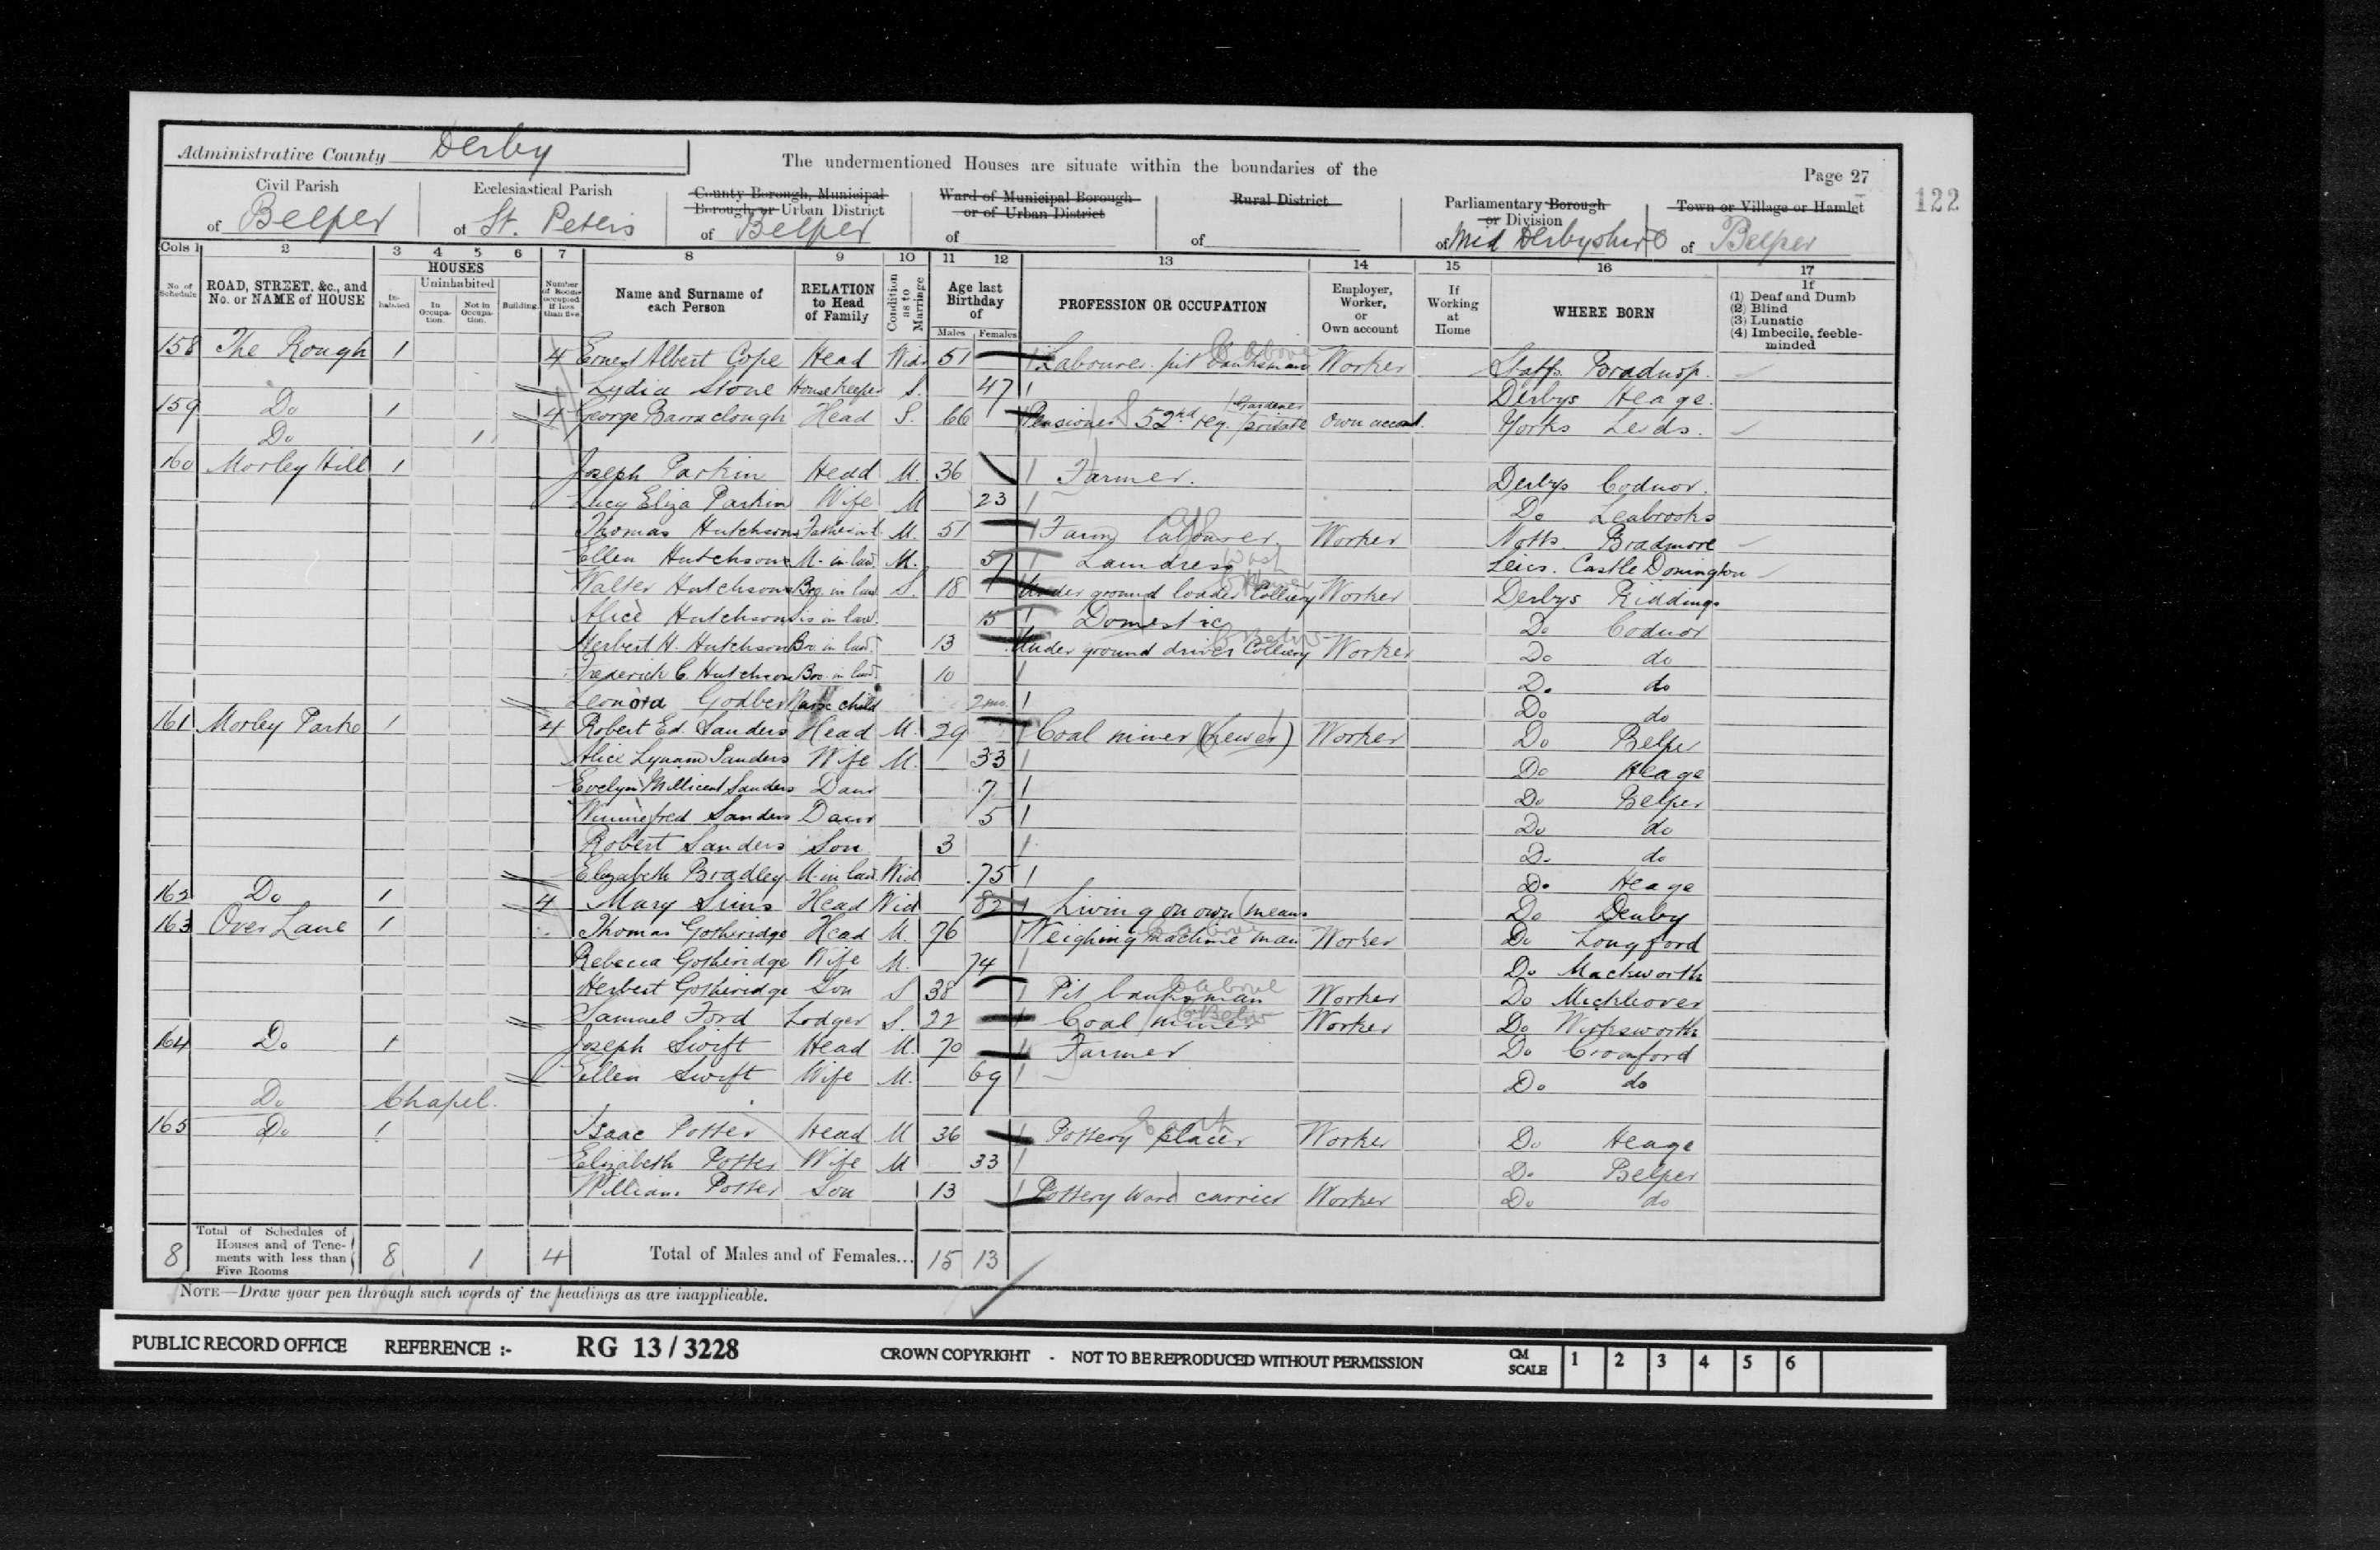 Administrative County Derby
The undermentioned Houses are situate within the boundaries of the
Page 27
122
Civil Parish of Belper
Ecclesiastical Parish of St. Peters
County Borough, Municipal Borough, or Urban District of Belper
Ward of Municipal Borough or of Urban District of
Rural District of
Parliamentary Borough or Division of Mid Derbyshire
Town or Village or Hamlet of Belper
Cols 1 2 3 4 5 6 7 8 9 10 11 12 13 14 15 16 17
No. of Schedule
ROAD, STREET, &c., and No. or NAME of HOUSE
HOUSES
In-habited
Uninhabited
In Occupa-tion.
Not in Occupa-tion.
Building
Number of Rooms occupied if less than five
Name and Surname of each Person
RELATION to Head of Family
Condition as to Marriage
Age last Birthday of
Males Females
PROFESSION OR OCCUPATION
Employer, Worker, or Own account
If Working at Home
WHERE BORN
If
(1) Deaf and Dumb
(2) Blind
(3) Lunatic
(4) Imbecile, feeble-minded
158 The Rough 1 4 Ernest Albert Cope Head Widr 51 Labourer pit banksman Worker Staffs Bradnop
Lydia Stone House Keeper S. 47 Derbys Heage.
159 Do 1 4 George Barraclough Head S. 66 Pensioner 52nd reg. private Gardener Own account. Yorks Leeds.
Do 1
160 Morley Hill 1 Joseph Parkin Head M. 36 Farmer. Derbys Codnor.
Lucy Eliza Parkin Wife M 23 Do Leabrooks
Thomas Hutchson Father in l. M. 51 Farm Labourer Worker Notts. Bradmore
Ellen Hutchson M. in law. M. 51 Laundress Wash Leics. Castle Donington
Walter Hutchson Bro. in law. S. 18 Under ground loader Colliery Worker Derbys Riddings
Alice Hutchson Sis in law. 15 Domestic Do Codnor
Herbert H. Hutchson Bro. in law. 13 Under ground driver Colliery Worker Do do
Frederick C. Hutchson Bro. in law. 10 Do do
Leonora Godber Nurse child 2 mo. Do do
161 Morley Park 1 4 Robert Ed. Sanders Head M. 29 Coal miner (hewer) Worker Do Belper
Alice Lynam Sanders Wife M. 33 Do Heage
Evelyn Millicent Sanders Daur 7 Do Belper
Winnefred Sanders Daur 5 Do do
Robert Sanders Son 3 Do do
Elizabeth Bradley M. in law. Wid 75 Do Heage
162 Do 1 4 Mary Sims Head Wid 82 Living on own means Do Denby
163 Over Lane 1 Thomas Gotheridge Head M. 76 Weighing machine man Worker Do Longford
Rebecca Gotheridge Wife M. 74 Do Mackworth
Herbert Gotheridge Son S 38 Pit banksman above Worker Do Mickleover
Samuel Ford Lodger S. 22 Coal miner Below Worker Do Wirksworth
164 Do 1 Joseph Swift Head M. 70 Farmer Do Cromford
Ellen Swift Wife M. 69 Do do
Do Chapel.
165 Do 1 Isaac Potter Head M 36 Pottery placer Worker Do Heage
Elizabeth Potter Wife M 33 Do Belper
William Potter Son 13 Pottery Ware carrier Worker Do do
8 Total of Schedules of Houses and of Tene-ments with less than Five Rooms 8 1 4 Total of Males and of Females... 15 13
NOTE—Draw your pen through such words of the headings as are inapplicable.
PUBLIC RECORD OFFICE REFERENCE :- RG 13 / 3228 CROWN COPYRIGHT - NOT TO BE REPRODUCED WITHOUT PERMISSION CM SCALE 1 2 3 4 5 6